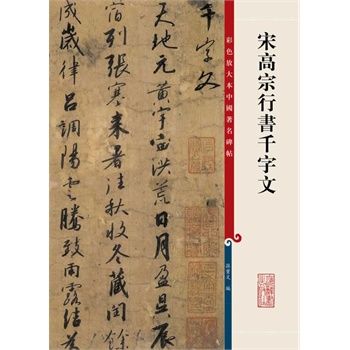 宋高宗行書千字文
彩色放大本中國著名碑帖
孫寶文 編
千字文
天地元黃宇宙洪荒日月盈昃
宿列張寒來暑往秋收冬藏閏餘
成歲律呂調陽雲騰致雨露結爲